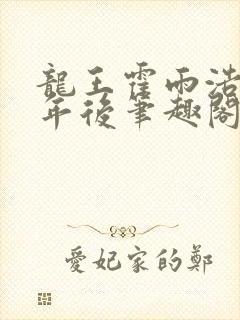 龍王霍雨浩
年後筆趣閣
愛妃家的鄭